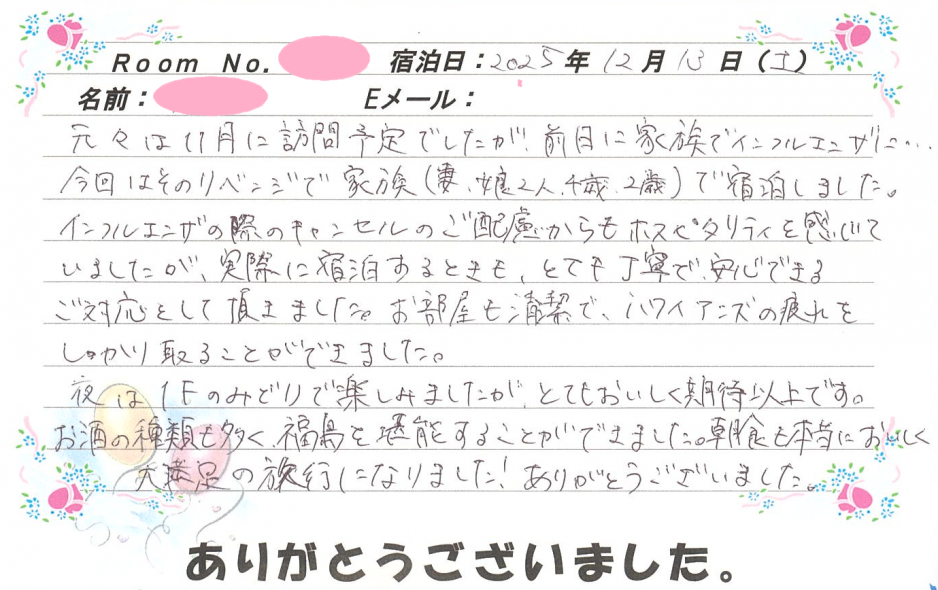 Room No. 宿泊日：2025年 12月 13日（土）
名前： Eメール：
元々は11月に訪問予定でしたが、前日に家族でインフルエンザに…
今回はそのリベンジで家族（妻、娘2人、4歳、2歳）で宿泊しました。
インフルエンザの際のキャンセルのご配慮からもホスピタリティを感じて
いましたが、実際に宿泊するときも、とても丁寧で、安心できる
ご対応をして頂きました。お部屋も清潔で、ハワイアンズの疲れを
しっかり取ることができました。
夜は1Fのみどりで楽しみましたが、とてもおいしく期待以上です。
お酒の種類も多く、福島を堪能することができました。朝食も本当においしく
大満足の旅行になりました！ありがとうございました。
ありがとうございました。